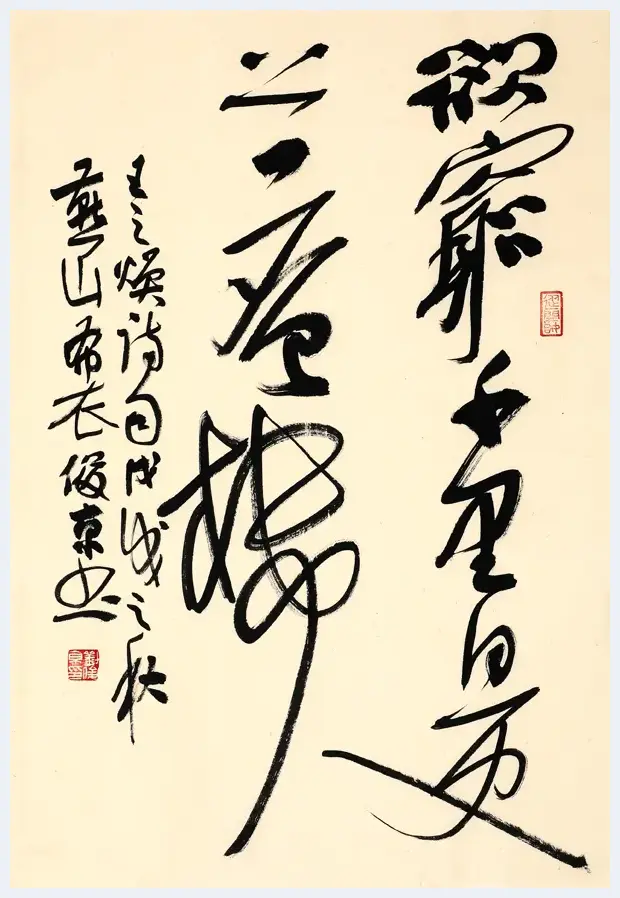 欲窮千里目更
上一層樓
王之焕诗句戊戌之秋
燕山布衣俊東书